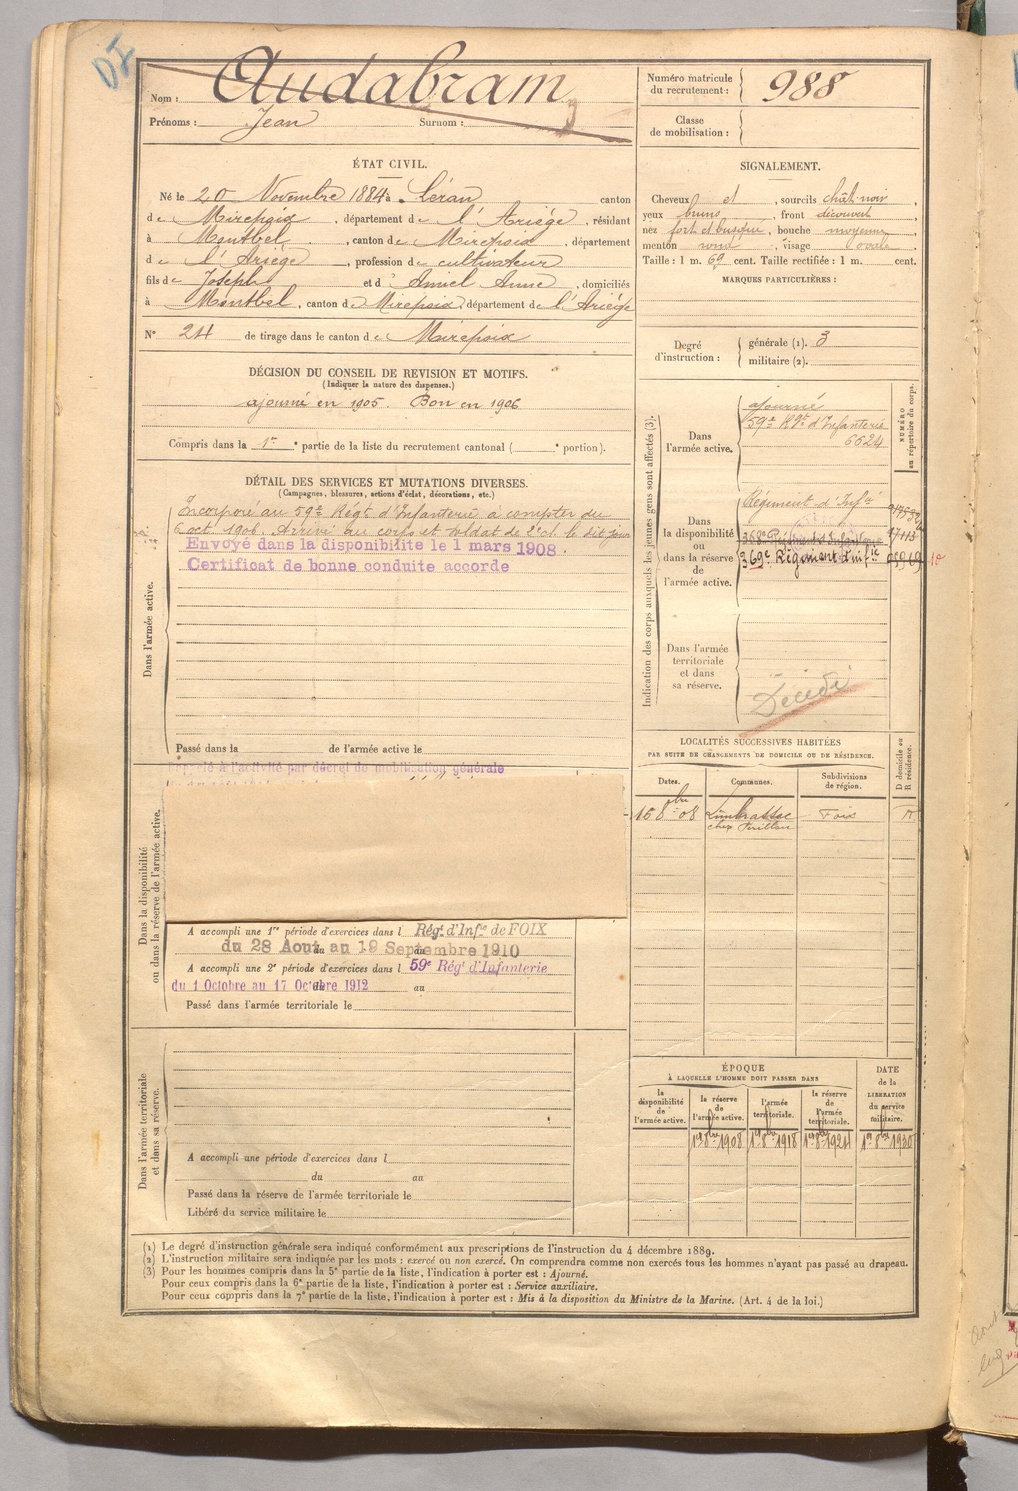 DI
Nom : Audabram
Prénoms : Jean Surnom :
Numéro matricule du recrutement : 988
Classe de mobilisation :
ÉTAT CIVIL.
Né le 20 Novembre 1884 à Léran canton
de Mirepoix, département de l'Ariège, résidant
à Montbel, canton de Mirepoix, département
de l'Ariège, profession de cultivateur
fils de Joseph et d' Amiel Anne, domiciliés
à Montbel, canton de Mirepoix, département de l'Ariège
N° 24 de tirage dans le canton de Mirepoix
SIGNALEMENT.
Cheveux et, sourcils chât-noir,
yeux bruns, front découvert,
nez fort et busqué, bouche moyenne,
menton rond, visage ovale
Taille : 1 m. 69 cent. Taille rectifiée : 1 m. cent.
MARQUES PARTICULIÈRES :
Degré d'instruction :
générale (1). 3
militaire (2).
DÉCISION DU CONSEIL DE REVISION ET MOTIFS.
(Indiquer la nature des dispenses.)
ajourné en 1905. Bon en 1906
Compris dans la 1re partie de la liste du recrutement cantonal ( portion).
DÉTAIL DES SERVICES ET MUTATIONS DIVERSES.
(Campagnes, blessures, actions d'éclat, décorations, etc.)
Dans l'armée active.
Incorporé au 59e Régt d'Infanterie à compter du
6 oct 1906. Arrivé au corps et soldat de 2e cl. le dit jour
Envoyé dans la disponibilite le 1 mars 1908.
Certificat de bonne conduite accorde
Passé dans la de l'armée active le
Indication des corps auxquels les jeunes gens sont affectés (3).
NUMÉRO au répertoire du corps.
Dans l'armée active.
ajourné
59e Rgt d'Infanterie
6624
Dans la disponibilité ou dans la réserve de l'armée active.
Régiment d'Infie
368e Régiment Infanterie
369e Régiment d'infie
10
Dans l'armée territoriale et dans sa réserve.
Décédé
Dans la disponibilité ou dans la réserve de l'armée active.
Rappelé à l'activité par décret de mobilisation générale
A accompli une 1re période d'exercices dans l Régt d'Infie de FOIX
du 28 Aout au 19 Septembre 1910
A accompli une 2e période d'exercices dans l 59e Régt d'Infanterie
du 1 Octobre au 17 Octobre 1912 au
Passé dans l'armée territoriale le
LOCALITÉS SUCCESSIVES HABITÉES
PAR SUITE DE CHANGEMENTS DE DOMICILE OU DE RÉSIDENCE.
Dates. Communes. Subdivisions de région. D domicile ou R résidence.
16 8bre 08 Limbrassac Foix R
chez
Dans l'armée territoriale et dans sa réserve.
A accompli une période d'exercices dans l
du au
Passé dans la réserve de l'armée territoriale le
Libéré du service militaire le
ÉPOQUE
À LAQUELLE L'HOMME DOIT PASSER DANS
DATE de la LIBÉRATION du service militaire.
la disponibilité de l'armée active. la réserve de l'armée active. l'armée territoriale. la réserve de l'armée territoriale.
1er 8bre 1908 1er 8bre 1918 1er 8bre 1924 1er 8bre 1930
(1) Le degré d'instruction générale sera indiqué conformément aux prescriptions de l'instruction du 4 décembre 1889.
(2) L'instruction militaire sera indiquée par les mots : exercé ou non exercé. On comprendra comme non exercés tous les hommes n'ayant pas passé au drapeau.
(3) Pour les hommes compris dans la 5e partie de la liste, l'indication à porter est : Ajourné.
Pour ceux compris dans la 6e partie de la liste, l'indication à porter est : Service auxiliaire.
Pour ceux compris dans la 7e partie de la liste, l'indication à porter est : Mis à la disposition du Ministre de la Marine. (Art. 4 de la loi.)